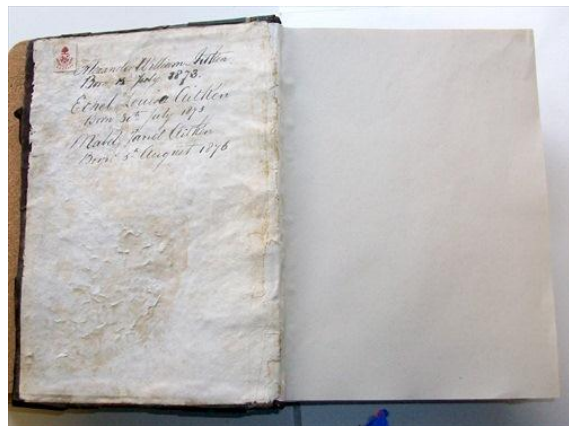 Alexander William Aitken
Born July 1873.
Ethel Louisa Aitken
Born 30th July 1875
Mabel Janet Aitken
Born 5th August 1876